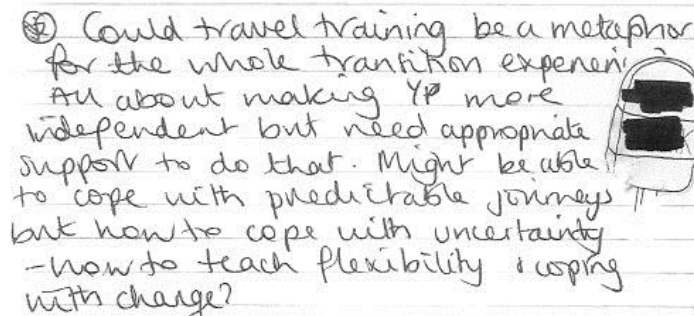 Could travel training be a metaphor
for the whole transition experience
All about making YP more
independent but need appropriate
support to do that. Might be able
to cope with predictable journeys
but how to cope with uncertainty
- how to teach flexibility & coping
with change?